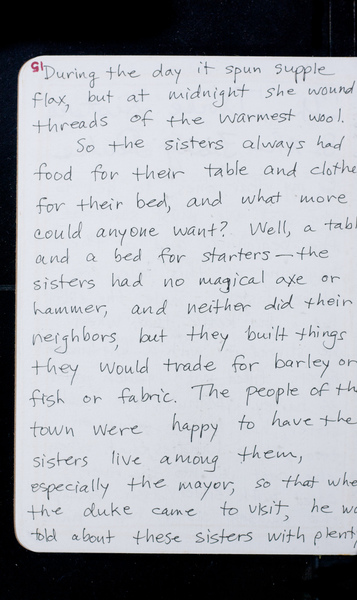 15 During the day it spun supple
flax, but at midnight she wound
threads of the warmest wool.
So the sisters always had
food for their table and clothe
for their bed, and what more
could anyone want? Well, a tabl
and a bed for starters—the
sisters had no magical axe or
hammer, and neither did their
neighbors, but they built things
they would trade for barley or
fish or fabric. The people of th
town were happy to have the
sisters live among them,
especially the mayor, so that whe
the duke came to visit, he wa
told about these sisters with plenty